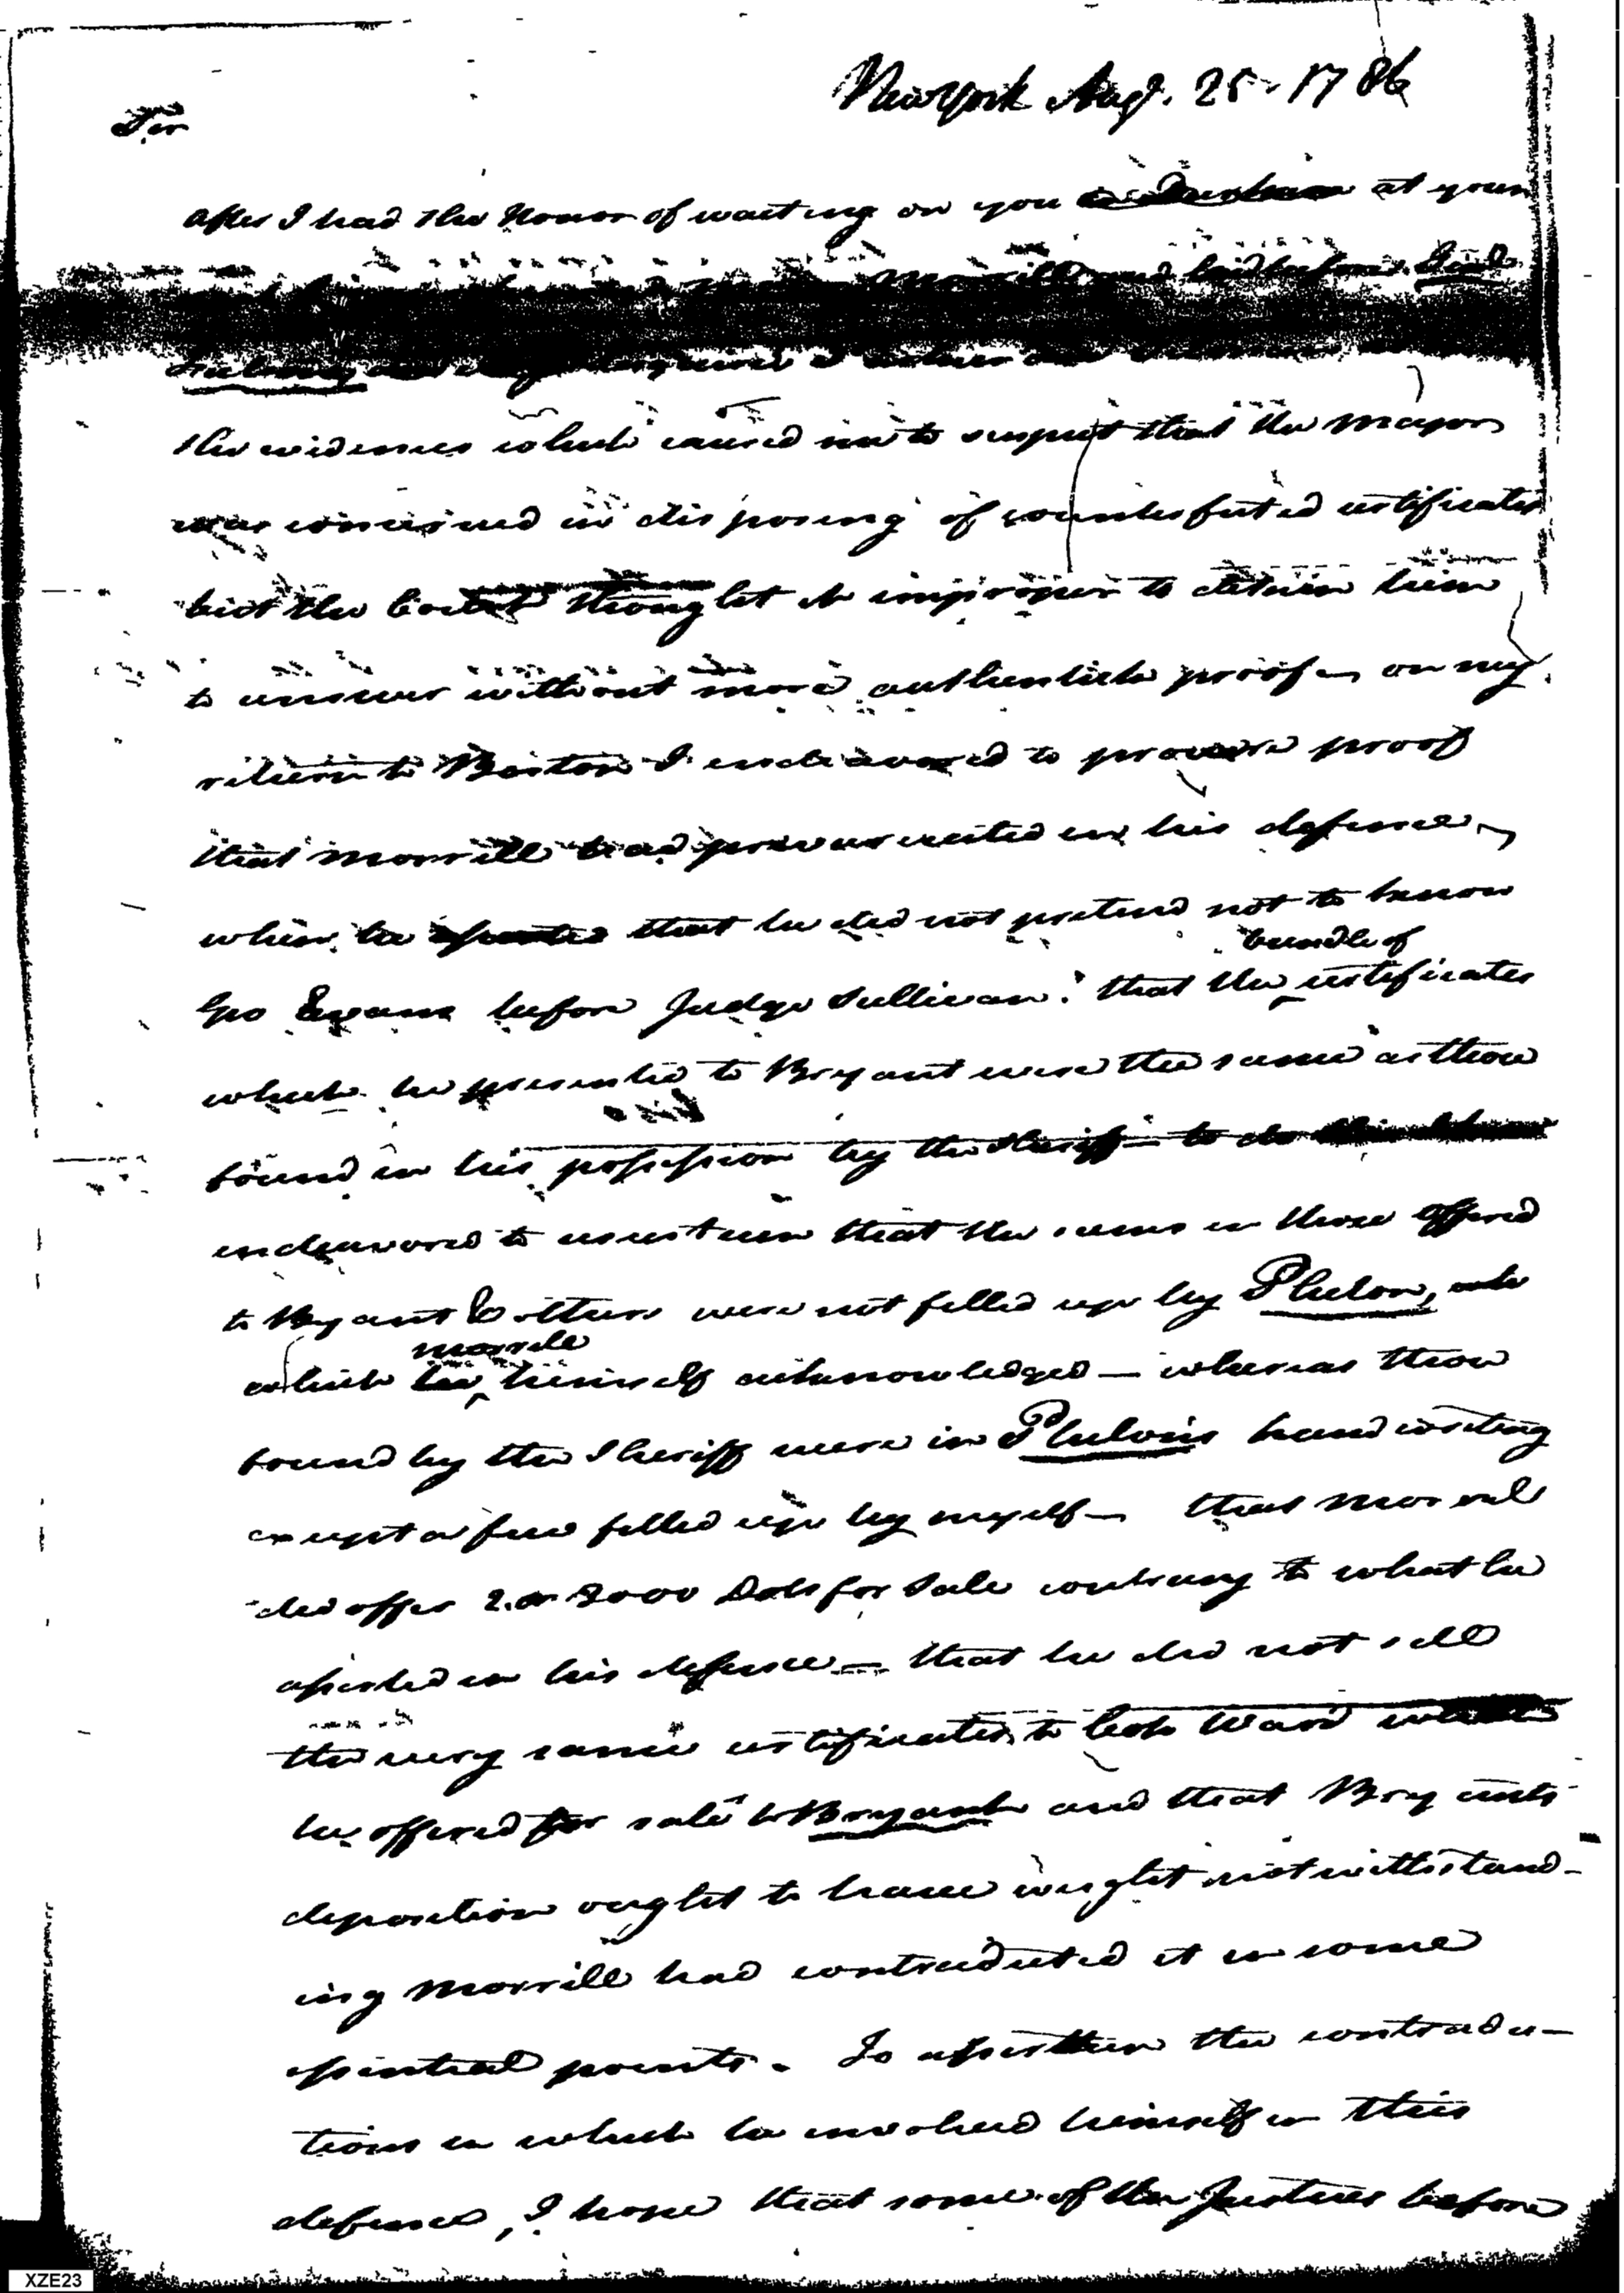 New York Aug. 25. 1786
Sir
After I had the Honor of waiting on you at your
Morrill and laid before
the evidences which caused me to suspect that the Major
was concerned in disposing of counterfeited certificates
but the Court thought it improper to detain him
to answer without more authentick proof – on my
return to Boston I endeavored to procure proof
that Morrill had prevaricated in his defence,
when he asserted that he did not pretend not to know
Geo Evans before Judge Sullivan: that the bundle of certificates
which he presented to Bryant were the same as those
found in his possession by the Sheriff – to do
endeavored to ascertain that the sums in those offered
to Bryant & others were not filled up by Phelon,
which Morrill himself acknowledged – whereas those
found by the Sheriff were in Phelon's hand writing
except a few filled up by myself – that Morrill
did offer 2 or 3000 Dols for Sale contrary to what he
asserted in his defence – that he did not sell
the very same certificates to Ward
he offered for sale to Bryant and that Bryants
deposition ought to have weight notwithstand-
ing Morrill had contradicted it in some
essential points. To ascertain the contradic-
tions in which he involved himself in this
defence, I hope that some of the Justices before
XZE23